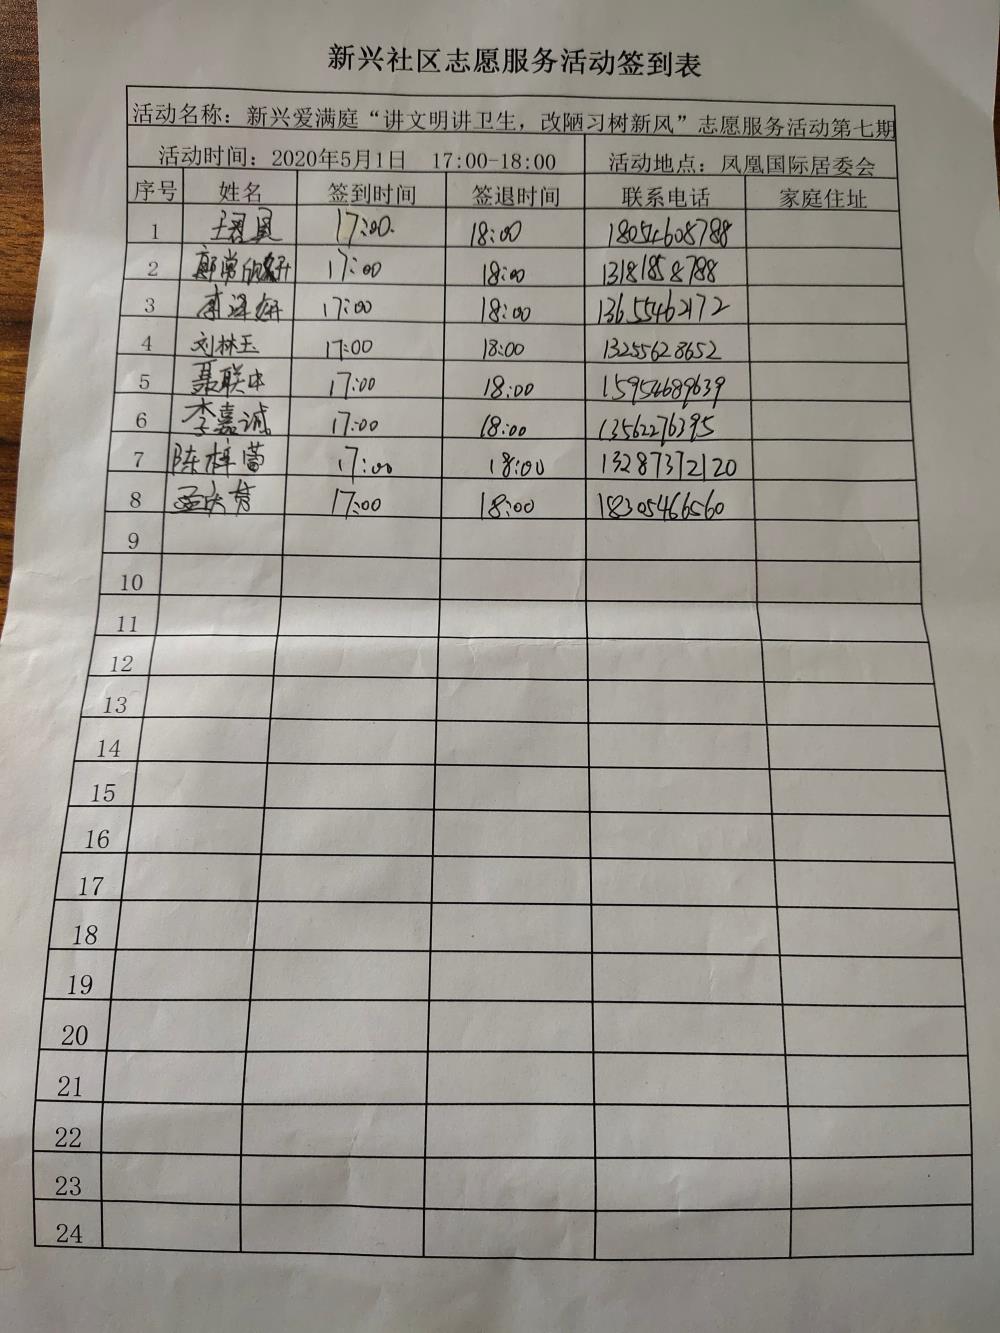 新兴社区志愿服务活动签到表
活动名称：新兴爱满庭“讲文明讲卫生，改陋习树新风”志愿服务活动第七期
活动时间：2020年5月1日 17:00-18:00 活动地点：凤凰国际居委会
序号 姓名 签到时间 签退时间 联系电话 家庭住址
1 17:00. 18:00 18054608788
2 17:00 18:00 13181858788
3 17:00 18:00 13655462172
4 刘林玉 17:00 18:00 13255628652
5 聂联中 17:00 18:00 15954689639
6 李嘉诚 17:00 18:00 13562276395
7 陈梓萱 17:00 18:00 13287372120
8 17:00 18:00 18305466560
9
10
11
12
13
14
15
16
17
18
19
20
21
22
23
24